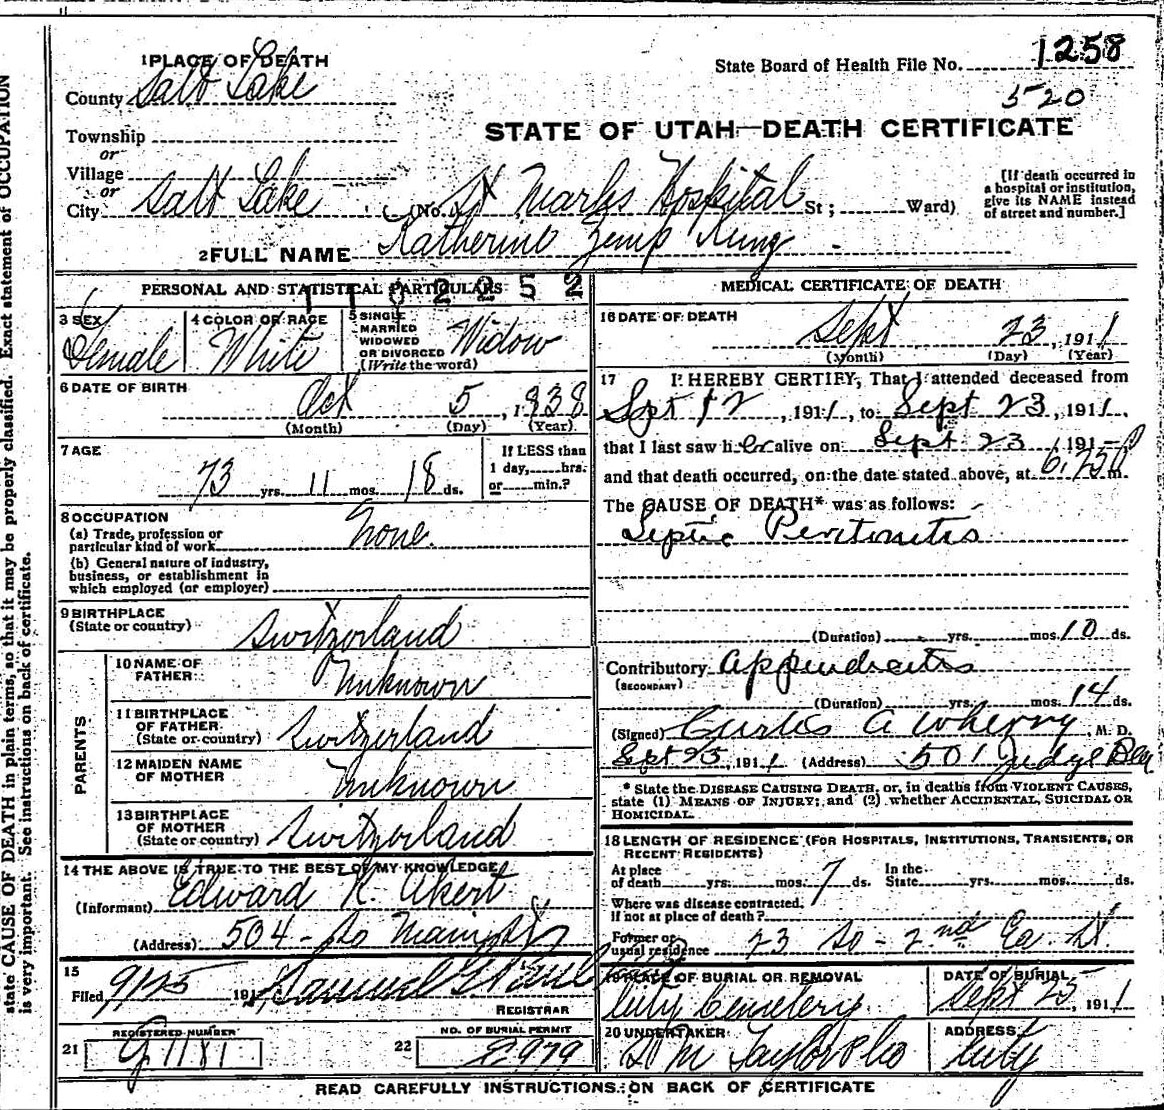 1 PLACE OF DEATH
County Salt Lake
Township
or
Village
or
City Salt Lake (No. St Marks Hospital St; Ward)
State Board of Health File No. 1258
520
STATE OF UTAH—DEATH CERTIFICATE
[If death occurred in
a hospital or institution,
give its NAME instead
of street and number.]
2 FULL NAME Katherine Zemp Kung
state CAUSE OF DEATH in plain terms, so that it may be properly classified. Exact statement of OCCUPATION
is very important. See instructions on back of certificate.
PERSONAL AND STATISTICAL PARTICULARS
2252
3 SEX
Female
4 COLOR OR RACE
White
5 SINGLE
MARRIED
WIDOWED
OR DIVORCED
(Write the word)
Widow
6 DATE OF BIRTH
Oct 5, 1838
(Month) (Day) (Year)
7 AGE
73 yrs. 11 mos. 18 ds.
If LESS than
1 day, hrs.
or min.?
8 OCCUPATION
(a) Trade, profession or
particular kind of work None.
(b) General nature of industry,
business, or establishment in
which employed (or employer)
9 BIRTHPLACE
(State or country) Switzerland
PARENTS
10 NAME OF
FATHER Unknown
11 BIRTHPLACE
OF FATHER
(State or country) Switzerland
12 MAIDEN NAME
OF MOTHER Unknown
13 BIRTHPLACE
OF MOTHER
(State or country) Switzerland
14 THE ABOVE IS TRUE TO THE BEST OF MY KNOWLEDGE
(Informant) Edward K. Akert
(Address) 504 - So Main St
15
Filed 9/25 191 Samuel G. Paul
REGISTRAR
REGISTERED NUMBER
21 1181
NO. OF BURIAL PERMIT
22 2979
MEDICAL CERTIFICATE OF DEATH
16 DATE OF DEATH
Sept 23, 1911
(Month) (Day) (Year)
17 I HEREBY CERTIFY, That I attended deceased from
Sept 12, 1911, to Sept 23, 1911,
that I last saw her alive on Sept 23 191
and that death occurred, on the date stated above, at m.
The CAUSE OF DEATH* was as follows:
Septic Peritonitis
(Duration) yrs. mos. 10 ds.
Contributory Appendicitis
(SECONDARY)
(Duration) yrs. mos. 14 ds.
(Signed) Curtis A Wherry, M. D.
Sept 23, 1911 (Address) 501 Judge Bldg
* State the DISEASE CAUSING DEATH, or, in deaths from VIOLENT CAUSES,
state (1) MEANS OF INJURY; and (2) whether ACCIDENTAL, SUICIDAL OR
HOMICIDAL.
18 LENGTH OF RESIDENCE (FOR HOSPITALS, INSTITUTIONS, TRANSIENTS, OR
RECENT RESIDENTS)
At place
of death yrs. mos. 7 ds.
In the
State yrs. mos. ds.
Where was disease contracted,
if not at place of death?
Former or
usual residence 23 So - 2nd Ea. St
19 PLACE OF BURIAL OR REMOVAL
City Cemetery
DATE OF BURIAL
Sept 25, 1911
20 UNDERTAKER
S M Taylor & Co
ADDRESS
City
READ CAREFULLY INSTRUCTIONS ON BACK OF CERTIFICATE